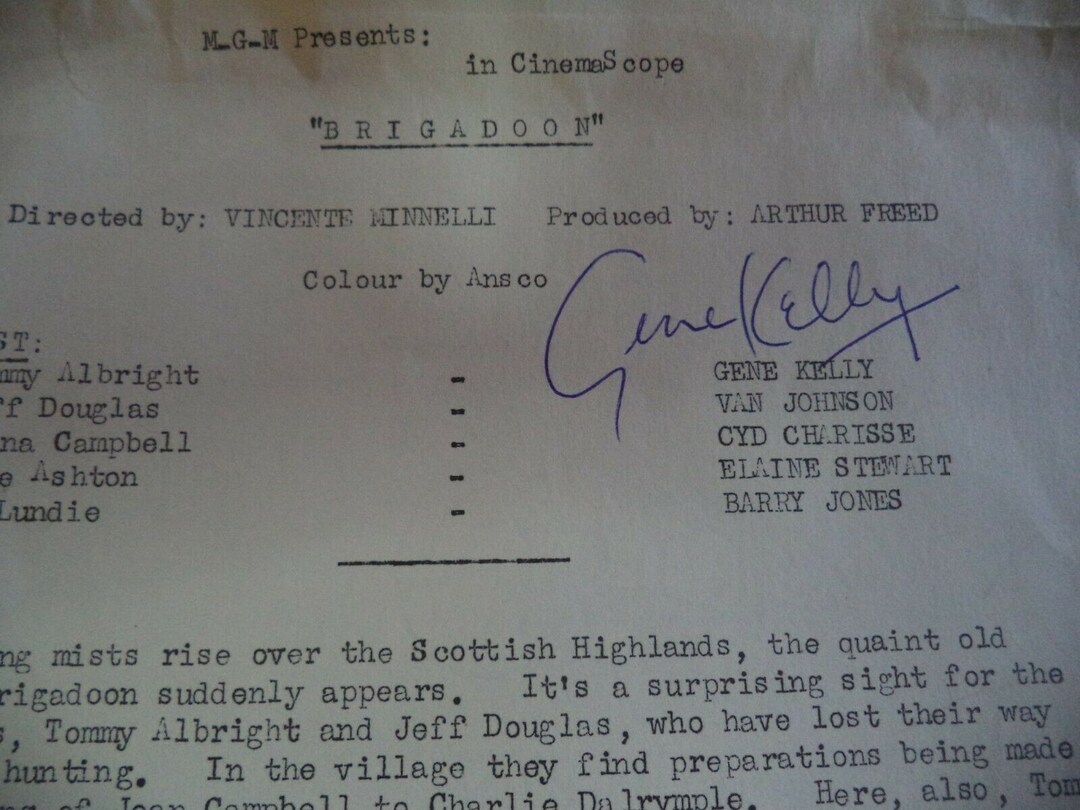 M-G-M Presents:
in CinemaScope
"BRIGADOON"
Directed by: VINCENTE MINNELLI Produced by: ARTHUR FREED
Colour by Ansco
Gene Kelly
ST:
mmy Albright - GENE KELLY
ff Douglas - VAN JOHNSON
na Campbell - CYD CHARISSE
e Ashton - ELAINE STEWART
Lundie - BARRY JONES
ng mists rise over the Scottish Highlands, the quaint old
rigadoon suddenly appears. It's a surprising sight for the
s, Tommy Albright and Jeff Douglas, who have lost their way
hunting. In the village they find preparations being made
ng of Jean Campbell to Charlie Dalrymple. Here, also, Tom